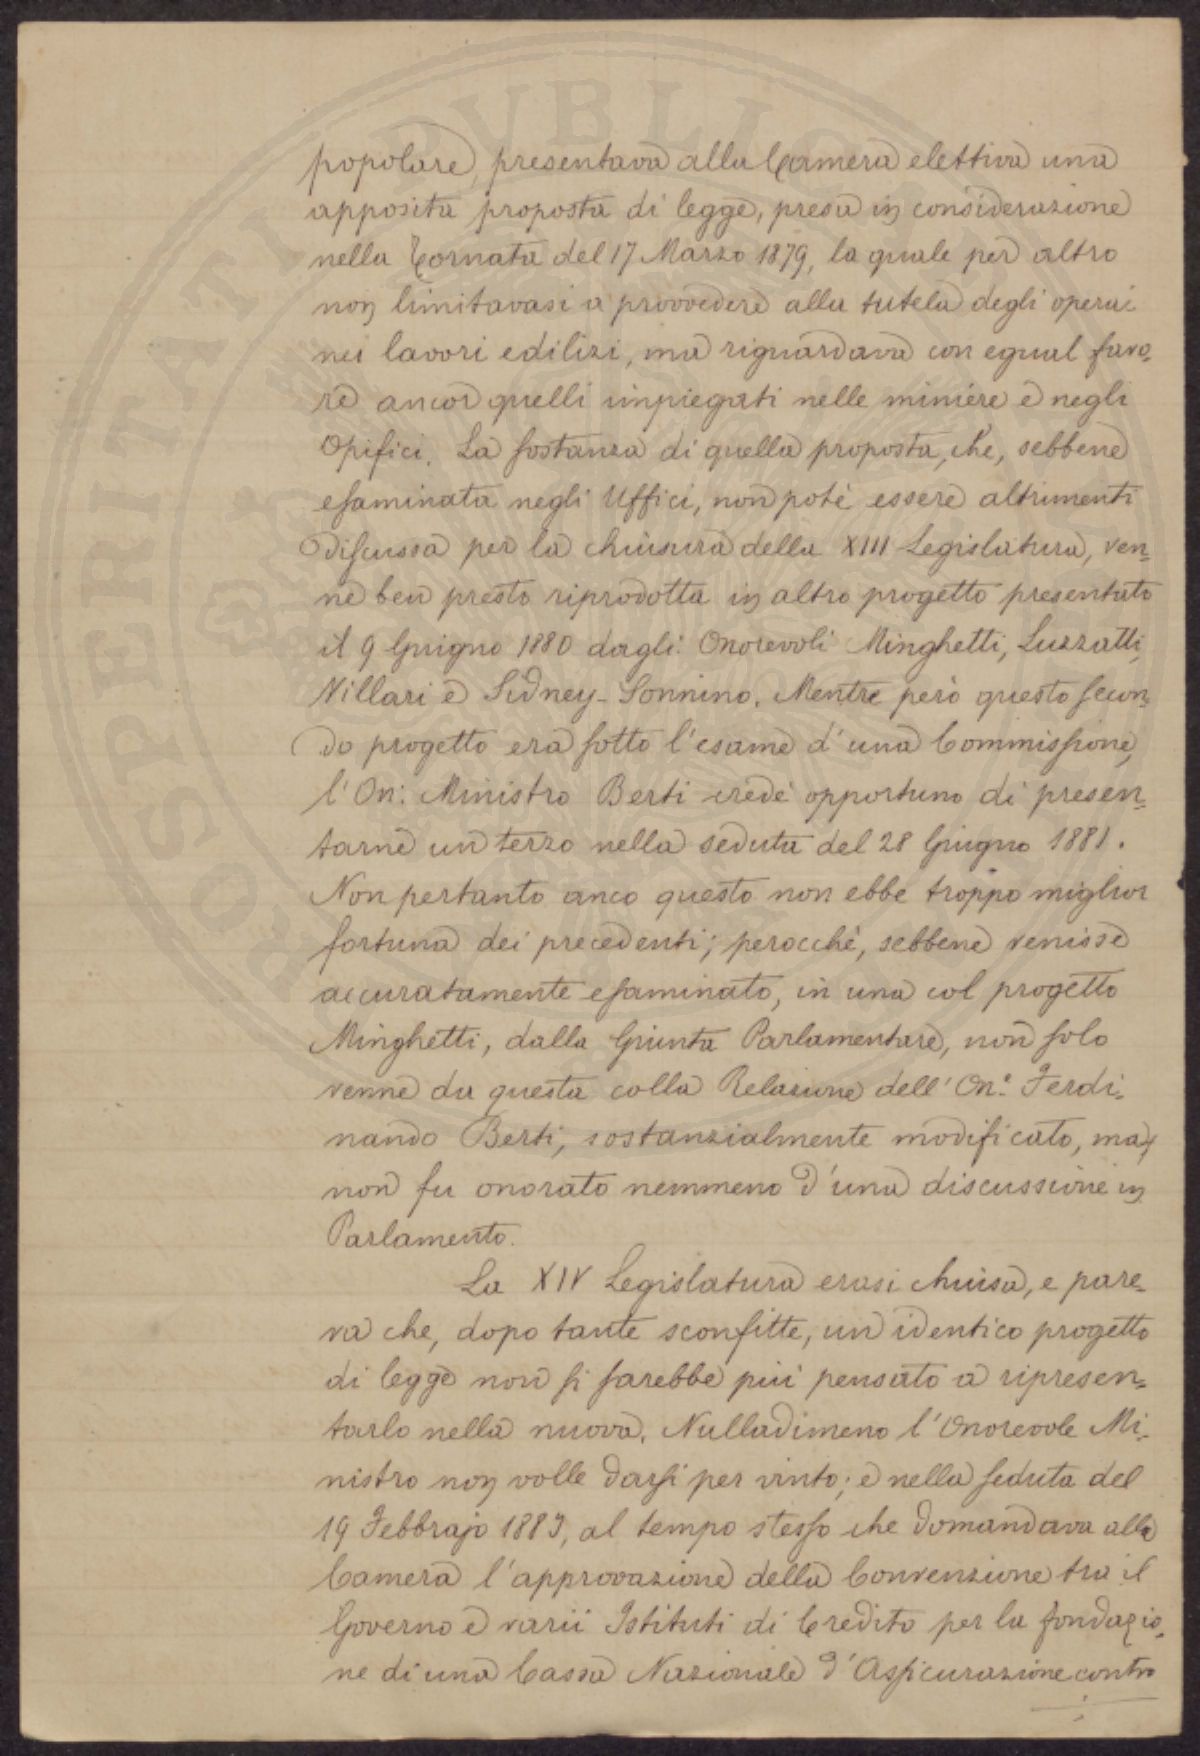 popolare, presentava alla Camera elettiva una
apposita proposta di legge, presa in considerazione
nella Tornata del 17 Marzo 1879, la quale per altro
non limitavasi a provvedere alla tutela degli operai
nei lavori edilizi, ma riguardava con egual favo-
re ancor quelli impiegati nelle miniere e negli
Opifici. La sostanza di quella proposta, che, sebbene
esaminata negli Uffici, non potè essere altrimenti
discussa per la chiusura della XIII Legislatura, ven-
ne ben presto riprodotta in altro progetto presentato
il 9 Giugno 1880 dagli Onorevoli Minghetti, Luzzatti,
Villari e Sidney-Sonnino. Mentre però questo secon-
do progetto era sotto l'esame d'una Commissione,
l'On: Ministro Berti credè opportuno di presen-
tarne un terzo nella seduta del 28 Giugno 1881.
Non pertanto anco questo non ebbe troppo miglior
fortuna dei precedenti; perocchè, sebbene venisse
accuratamente esaminato, in una col progetto
Minghetti, dalla Giunta Parlamentare, non solo
venne da questa colla Relazione dell'On.e Ferdi-
nando Berti, sostanzialmente modificato, ma
non fu onorato nemmeno d'una discussione in
Parlamento.
La XIV Legislatura erasi chiusa, e pare-
va che, dopo tante sconfitte, un identico progetto
di legge non si sarebbe più pensato a ripresen-
tarlo nella nuova. Nulladimeno l'Onorevole Mi-
nistro non volle darsi per vinto; e nella seduta del
19 Febbrajo 1883, al tempo stesso che domandava alla
Camera l'approvazione della Convenzione tra il
Governo e varii Istituti di Credito per la fondazio-
ne di una Cassa Nazionale d'Assicurazione contro
PROSPERITATI PUBLICAE